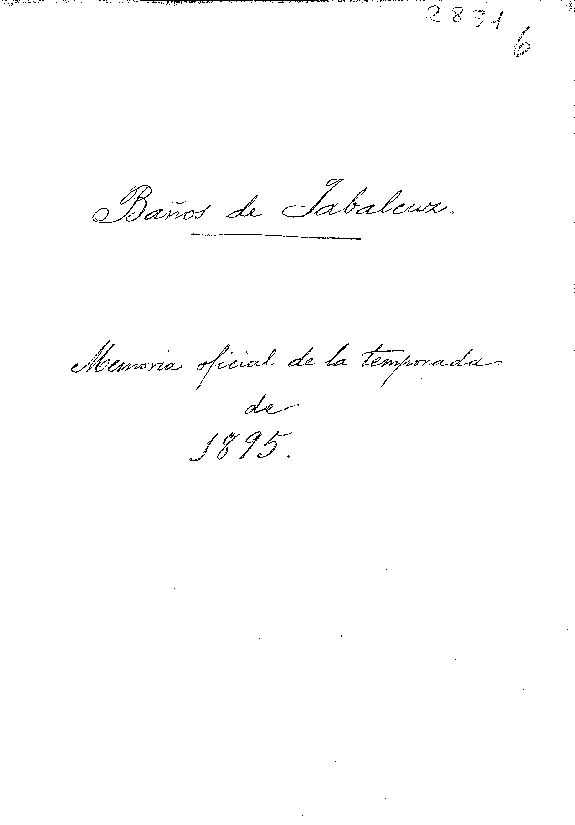 2891
6
Baños de Jabalcuz.
Memoria oficial de la temporada
de
1895.